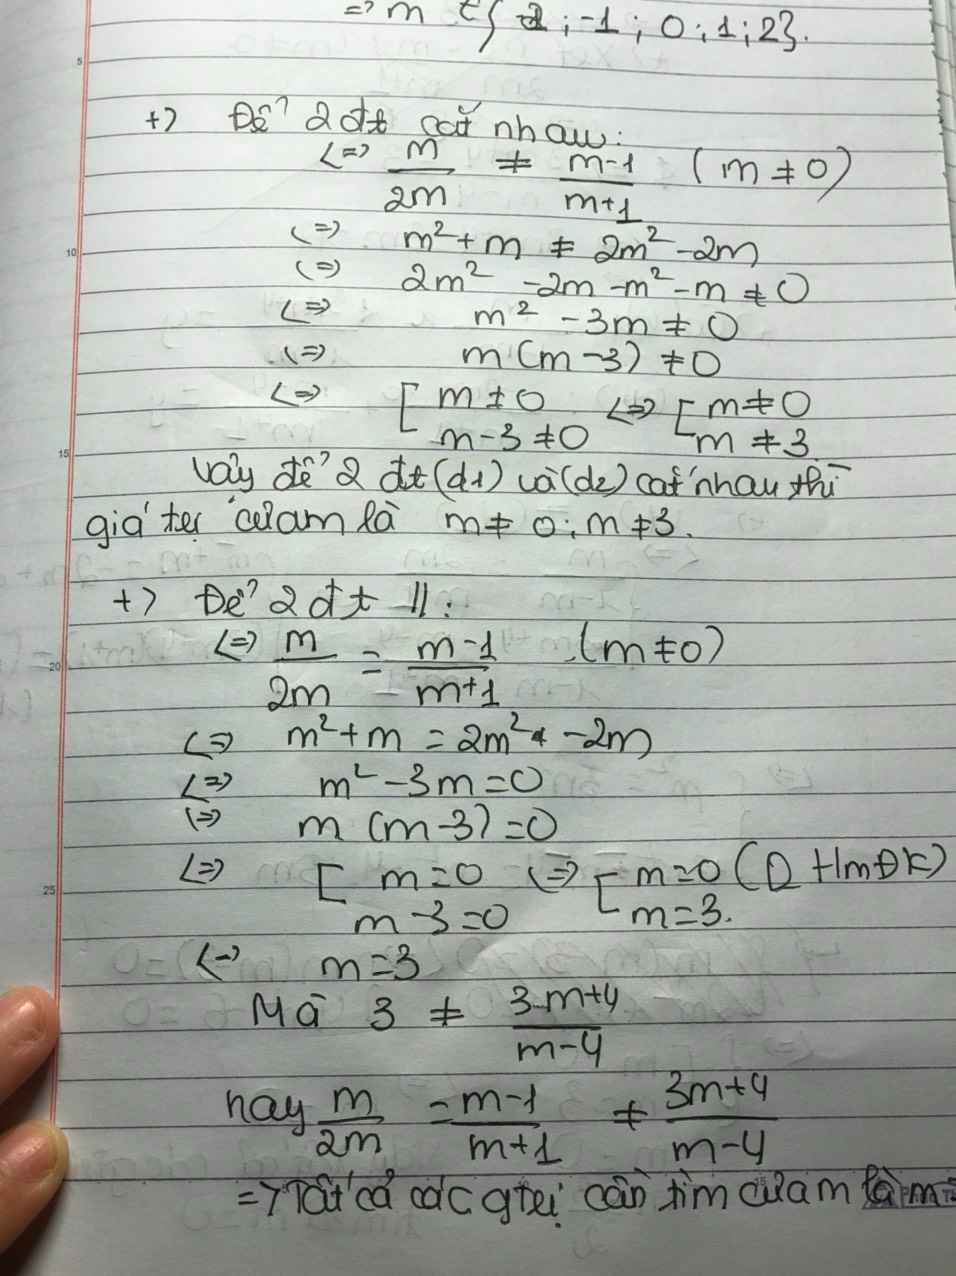 => m ∈ { 2 ; -1 ; 0 ; 1 ; 2 }.
5
+) Để 2 đt cắt nhau:
<=> m/2m ≠ m-1/m+1 (m ≠ 0)
<=> m² + m ≠ 2m² - 2m
10
<=> 2m² - 2m - m² - m ≠ 0
<=> m² - 3m ≠ 0
<=> m (m - 3) ≠ 0
<=> [ m ≠ 0 <=> [ m ≠ 0
m - 3 ≠ 0 m ≠ 3
15
Vậy để 2 đt (d1) và (d2) cắt nhau thì
giá trị của m là m ≠ 0 ; m ≠ 3.
+) Để 2 đt // :
<=> m/2m = m-1/m+1 (m ≠ 0)
20
<=> m² + m = 2m² - 2m
<=> m² - 3m = 0
<=> m (m - 3) = 0
<=> [ m = 0 <=> [ m = 0 (0 t/m ĐK)
25
m - 3 = 0 m = 3.
<=> m = 3
Mà 3 ≠ 3m+4/m-4
hay m/2m = m-1/m+1 ≠ 3m+4/m-4
=> Tất cả các gtrị cần tìm của m là m=